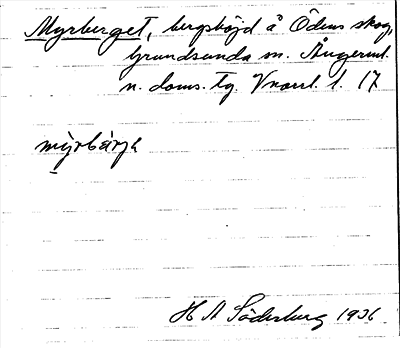 Myrberget, bergshöjd å Ödens skog,
Grundsunda sn. Ångerml.
n. doms. tg. Vnorrl. l. 17
myrbärjə
H A Söderberg 1936